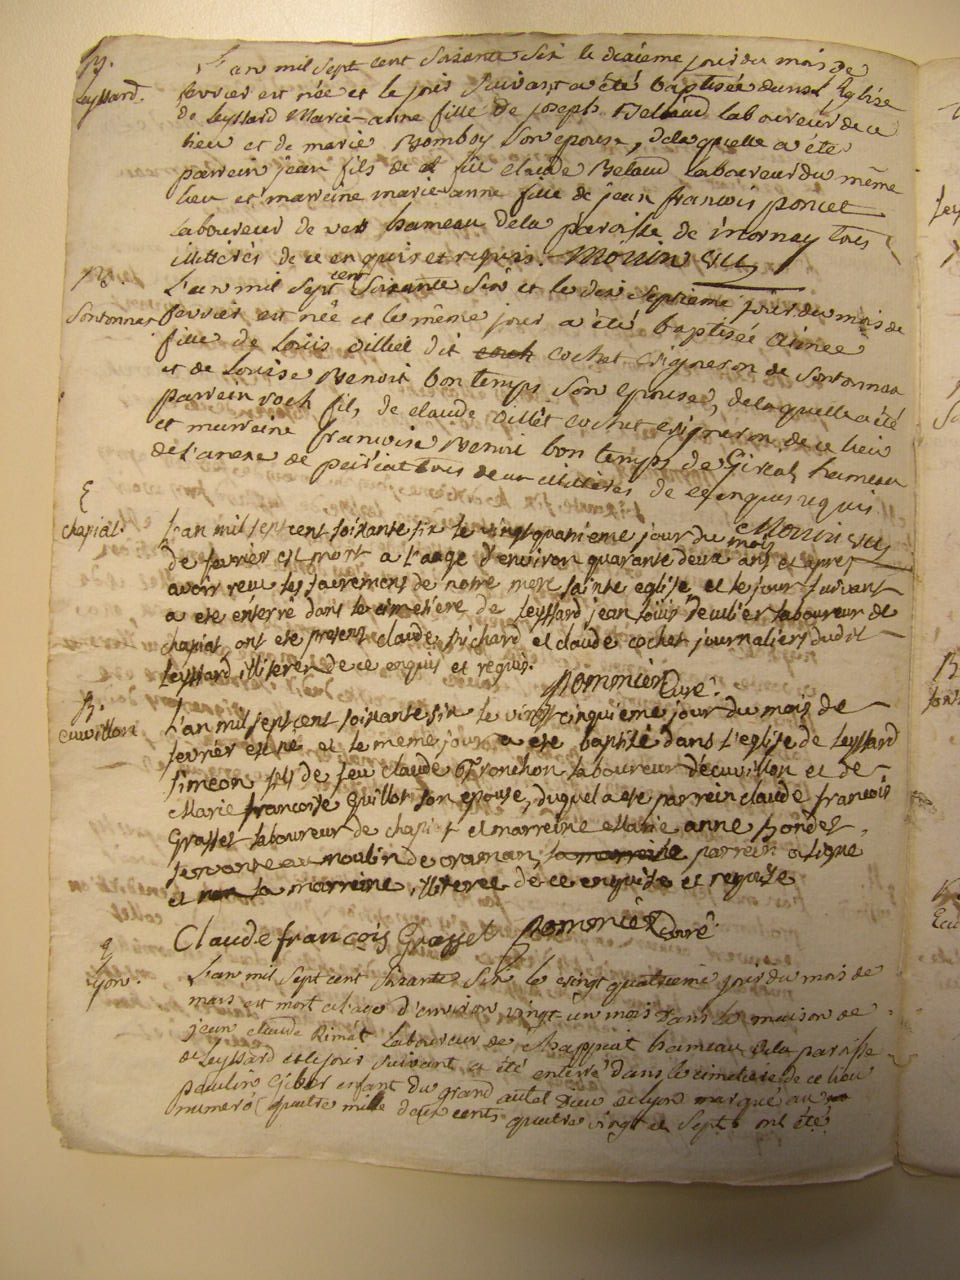 B.
Leyssard.
L'an mil sept cent soixante six le dixieme jour du mois de
fevrier est née et le jour suivant a été baptisée dans l'Eglise
de Leyssard Marie-anne fille de joseph Beland laboureur de ce
lieu et de marie Bomboy son epouse, de laquelle a été
parrein jean fils de claude Beland laboureur du même
lieu et marreine marie-anne fille de jean francois poncet
laboureur de hameau de la paroisse de inornay tous
illiterés de ce enquis et requis. Monin vic
B.
Sontonnax
L'an mil sept cent soixante six et le dix septieme jour du mois de
fevrier est née et le même jour a été baptisée Aimée
fille de Louis villiet dit cochet vigneron de Sontonnax
et de Louise Benoit bon temps son epouse, de laquelle a été
parrein roch fils de claude villet cochet vigneron de ce lieu
et marreine francoise Benoit bon temps de hameau
de l'anexe de tous deux illiterés de ce enquis requis
Monin vic
chapiat.
L'an mil sept cent soixante six le vingt quatrieme jour du mois
de fevrier est mort a l'aage d'environ quarante deux ans et apres
avoir reçu les sacremens de notre mere sainte eglise et le jour suivant
a eté enterré dans le cimetiere de Leyssard jean louis laboureur de
chapiat, ont eté presens claude richard et claude cochet journaliers dudit
Leyssard, illiterés de ce enquis et requis.
Pommier Curé.
B.
cuvillon
L'an mil sept cent soixante six le vingt cinquieme jour du mois de
fevrier est né et le meme jour a eté baptisé dans l'eglise de Leyssard
simeon fils de feu claude tronchon laboureur de cuvillon et de
Marie francoise Guillot son epouse, duquel a eté parrein claude francois
Grasset laboureur de chapiat et marreine Marie anne
servante au moulin de craman, la marreine parrein a signe
et non la marreine, illiteree de ce enquise et requise
Claude francois Grasset Pommier Curé
Lyon.
L'an mil sept cent soixante six le vingt quatrieme jour du mois de
mars est mort a l'age d'environ vingt un mois dans la maison de
jean claude Rimet laboureur de Chappiat hameau de la paroisse
de Leyssard et le jour suivant a été enterré dans le cimetiere de ce lieu
paulin enfant du grand autel dieu de lyon marqué au
numero quatre mille deux cents quatre vingt et sept, ont été